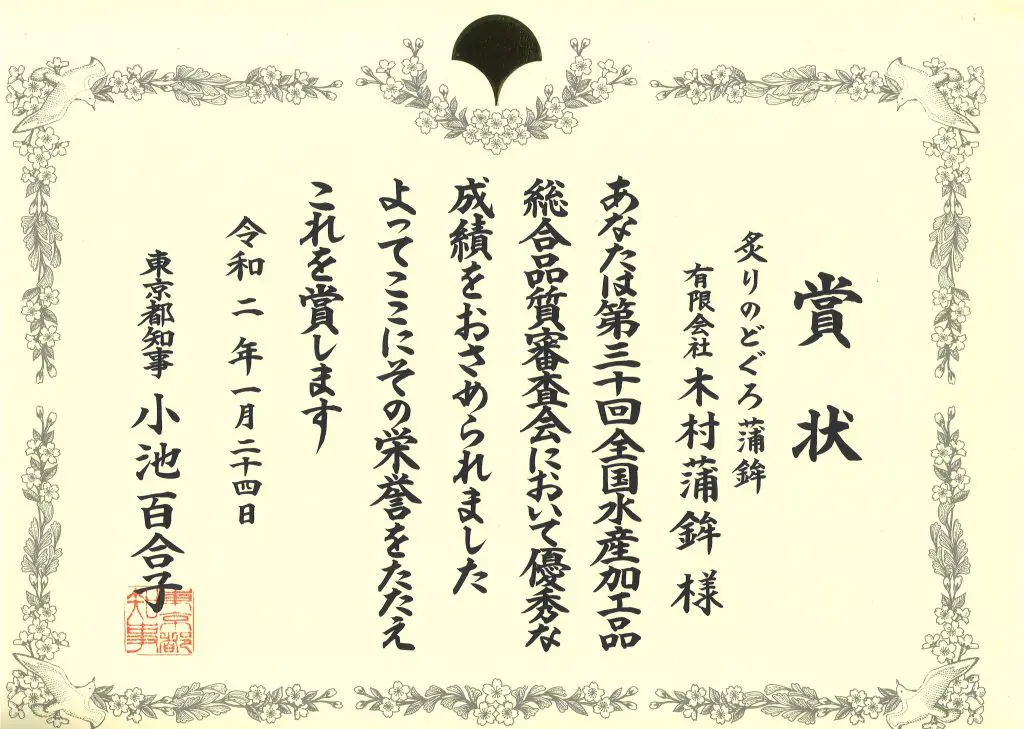 賞状
炙りのどぐろ蒲鉾
有限会社 木村蒲鉾 様
あなたは第三十回全国水産加工品
総合品質審査会において優秀な
成績をおさめられました
よってここにその栄誉をたたえ
これを賞します
令和二年一月二十四日
東京都知事 小池百合子
東京都
知事